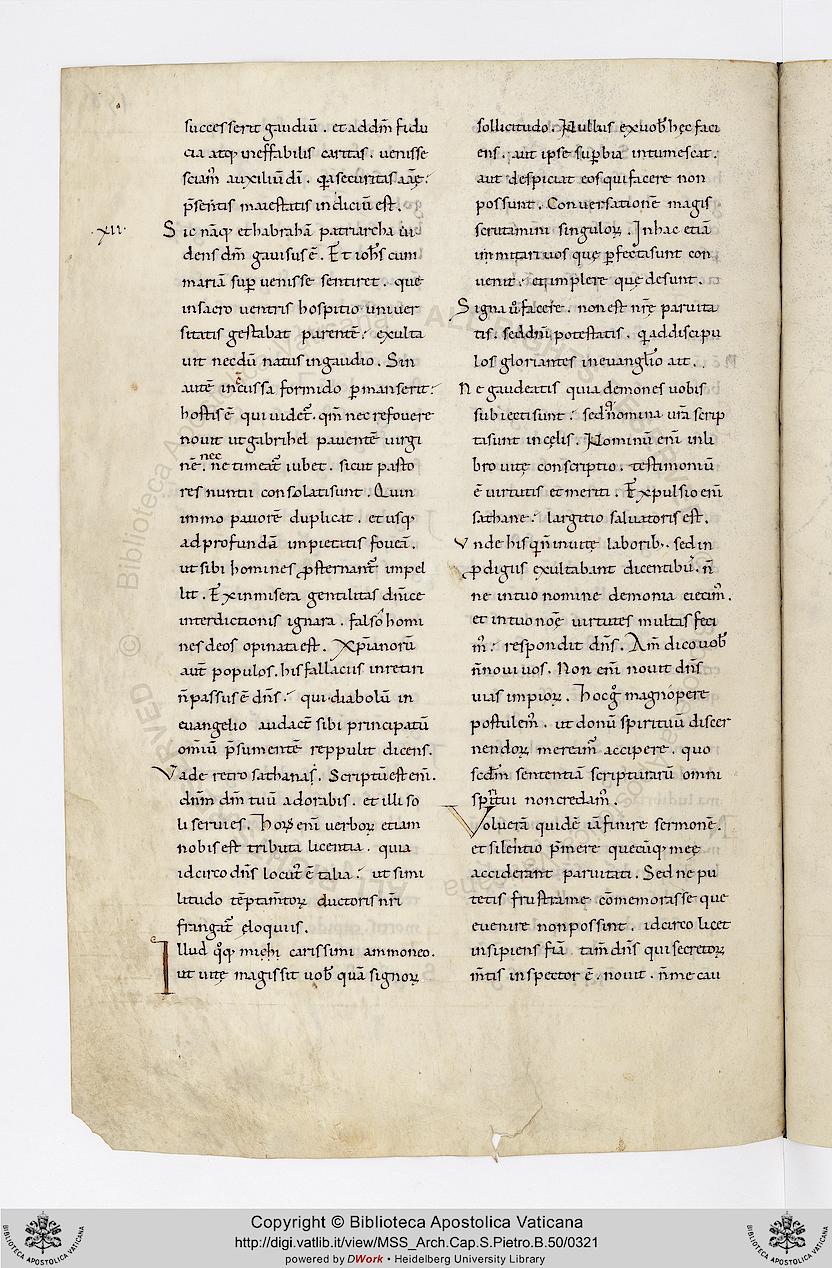 successerit gaudiū . et addm̄ fidu
cia atq; ineffabilis caritas . uenisse
sciam̃ auxiliū dī . q̄a securitas aīę:
p̄sentis maiestatis indiciū est .
.xii.
Sic nāq; et habrahā patriarcha ui
dens dm̄ gauisus ē . Et ioh̄s cum
mariā sup̱ uenisse sentiret . que
in sacro uentris hospitio uniuer
sitatis gestabat parentē : exulta
uit necdū natus in gaudio . Sin
autē incussa formido p̱manserit :
hostis ē qui uidet̃ . qm̄ nec refouere
nouit ut gabrihel pauentē uirgi
nē . nec ne timeat̃ iubet . sicut pasto
res nuntii consolati sunt . Quin
immo pauorē duplicat . et usq;
ad profundā impietatis foueā .
ut sibi homines p̱sternant̃ impel
lit . Ex in misera gentilitas dn̄ice
interdictionis ignara . falso homi
nes deos opinata est . Xp̄ianorū
aut̄ populos . his fallaciis inretiri
n̄ passus ē dn̄s : qui diabolū in
euangelio audact̄ sibi principatū
omīū p̄sumentē reppulit dicens .
Vade retro sathanas . Scriptū est enī .
dn̄m dm̄ tuū adorabis . et illi so
li seruies . Horꝝ enī uerboꝝ etiam
nobis est tributa licentia . quia
idcirco dn̄s locut̃ ē talia : ut simi
litudo tēptamtoꝝ ductoris nr̄i
frangat̃ eloquiis .
Illud q̊q; michi carissimi ammoneo .
ut uitę magis sit uob̄ quā signoꝝ
sollicitudo . Nullus ex uob̄ hęc faci
ens . aut ipse sup̱bia intumescat .
aut despiciat eos qui facere non
possunt . Conuersationē magis
scrutamini singuloꝝ . In hac etiā
immitari uos quę p̱fecta sunt con
uenit : et implere quę desunt .
Signa ů facere . non est nr̄ę paruita
tis : sed dn̄i potestatis . q̄ ad discipu
los gloriantes in euanglio ait .
Ne gaudeatis quia demones uobis
subiecti sunt : sed q̊ nomina ur̄a scrip
ta sunt in cęlis . Nominū enī in li
bro uitę conscriptio . testimoniū
ē uirtutis et meriti . Expulsio enī
sathane : largitio saluatoris est .
Vnde his q̄ n̄ in uitę laborib; . sed in
p̱digiis exultabant dicentib; . n̄
ne in tuo nomine demonia eiecim̃ .
et in tuo noē uirtutes multas feci
m̃ : respondit dn̄s . Am̄ dico uob̄
n̄ noui uos . Non enī nouit dn̄s
uias impioꝝ . Hoc g̊ magnopere
postulem̃ . ut donū spirituū discer
nendoꝝ meream̃ accipere . quo
scd̄m sententiā scripturarū omni
sp̄rtui non credam̃ .
Volueram quidē iā finire sermonē .
et silentio p̄mere quecūq; meę
acciderant paruitati . Sed ne pu
tetis frustra me cōmemorasse que
euenire non possint . idcirco licet
insipiens fiā tam̄ dn̄s qui secretoꝝ
m̄tis inspector ē . nouit . n̄ me cau
Copyright © Biblioteca Apostolica Vaticana
http://digi.vatlib.it/view/MSS_Arch.Cap.S.Pietro.B.50/0321
powered by DWork • Heidelberg University Library
BIBLIOTECA APOSTOLICA VATICANA
BIBLIOTECA APOSTOLICA VATICANA